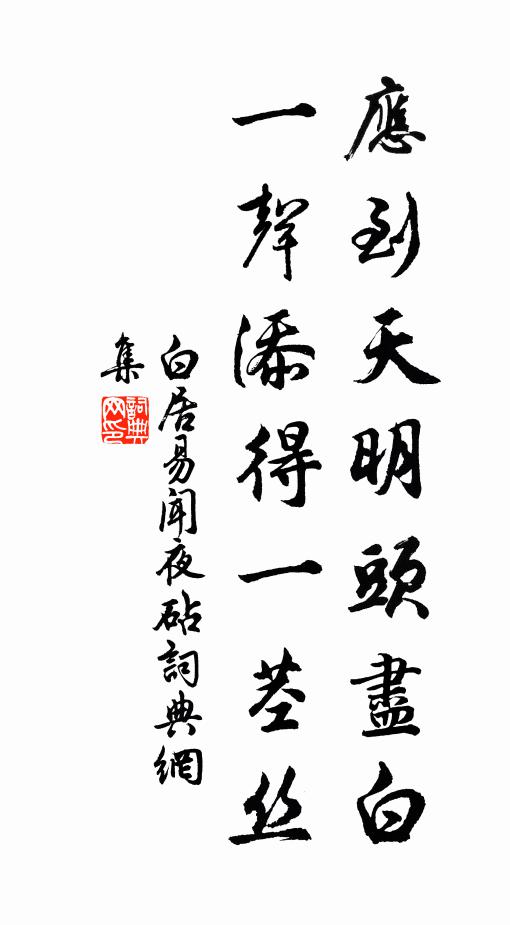 應到天明頭盡白
一聲添得一莖丝
白居易聞夜砧詞典網
集
詞典
网印